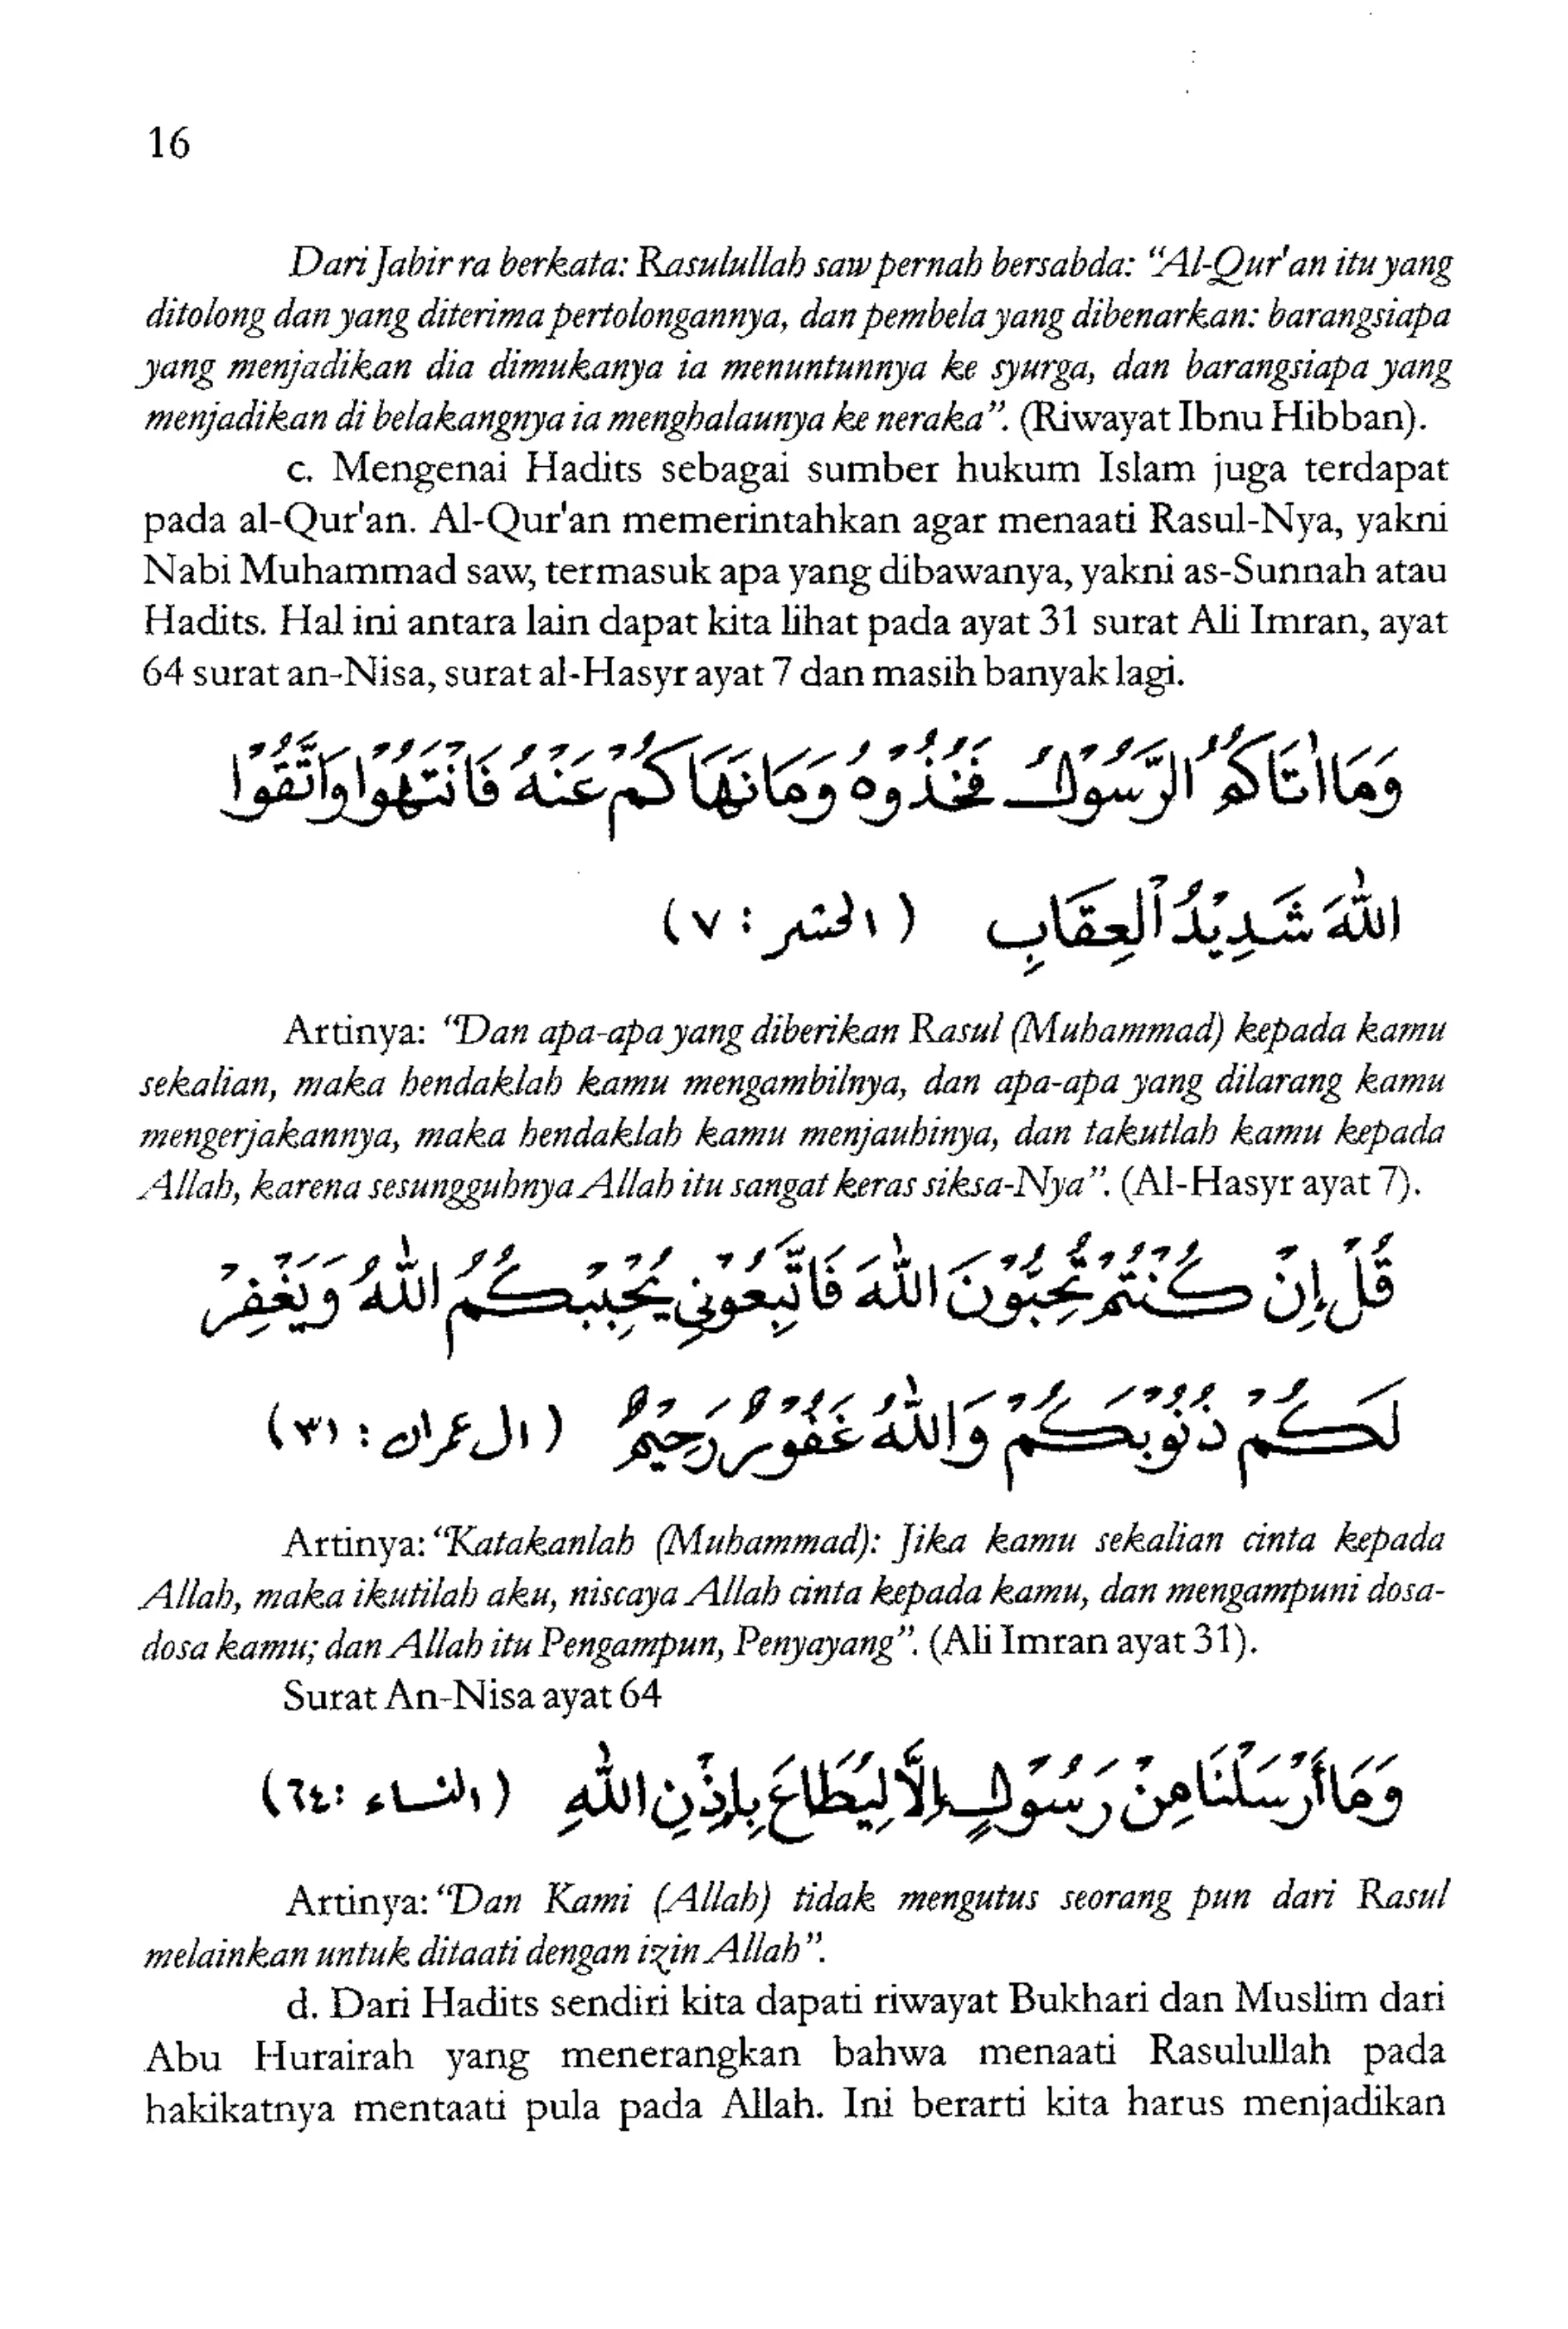 16
Dari Jabir ra berkata: Rasulullah saw pernah bersabda: “Al-Qur'an itu yang
ditolong dan yang diterima pertolongannya, dan pembela yang dibenarkan: barangsiapa
yang menjadikan dia dimukanya ia menuntunnya ke syurga, dan barangsiapa yang
menjadikan di belakangnya ia menghalaunya ke neraka”. (Riwayat Ibnu Hibban).
c. Mengenai Hadits sebagai sumber hukum Islam juga terdapat
pada al-Qur'an. Al-Qur'an memerintahkan agar menaati Rasul-Nya, yakni
Nabi Muhammad saw, termasuk apa yang dibawanya, yakni as-Sunnah atau
Hadits. Hal ini antara lain dapat kita lihat pada ayat 31 surat Ali Imran, ayat
64 surat an-Nisa, surat al-Hasyr ayat 7 dan masih banyak lagi.
وَمَا اٰتَاكُمُ الرَّسُوْلُ فَخُذُوْهُ وَمَا نَهَاكُمْ عَنْهُ فَانْتَهُوْا وَاتَّقُوْا
اللّٰهَ شَدِيْدُ الْعِقَابِ ( الحشر : ٧ )
Artinya: “Dan apa-apa yang diberikan Rasul (Muhammad) kepada kamu
sekalian, maka hendaklah kamu mengambilnya, dan apa-apa yang dilarang kamu
mengerjakannya, maka hendaklah kamu menjauhinya, dan takutlah kamu kepada
Allah, karena sesungguhnya Allah itu sangat keras siksa-Nya”. (Al-Hasyr ayat 7).
قُلْ إِنْ كُنْتُمْ تُحِبُّوْنَ اللّٰهَ فَاتَّبِعُوْنِي يُحْبِبْكُمُ اللّٰهُ وَيَغْفِرْ
لَكُمْ ذُنُوْبَكُمْ وَاللّٰهُ غَفُوْرٌ رَحِيْمٌ ( ال عمران : ٣١ )
Artinya: “Katakanlah (Muhammad): Jika kamu sekalian cinta kepada
Allah, maka ikutilah aku, niscaya Allah cinta kepada kamu, dan mengampuni dosa-
dosa kamu; dan Allah itu Pengampun, Penyayang”. (Ali Imran ayat 31).
Surat An-Nisa ayat 64
وَمَا أَرْسَلْنَا مِنْ رَسُوْلٍ إِلَّا لِيُطَاعَ بِإِذْنِ اللّٰهِ ( النساء : ٦٤ )
Artinya: “Dan Kami (Allah) tidak mengutus seorang pun dari Rasul
melainkan untuk ditaati dengan izin Allah”.
d. Dari Hadits sendiri kita dapati riwayat Bukhari dan Muslim dari
Abu Hurairah yang menerangkan bahwa menaati Rasulullah pada
hakikatnya mentaati pula pada Allah. Ini berarti kita harus menjadikan